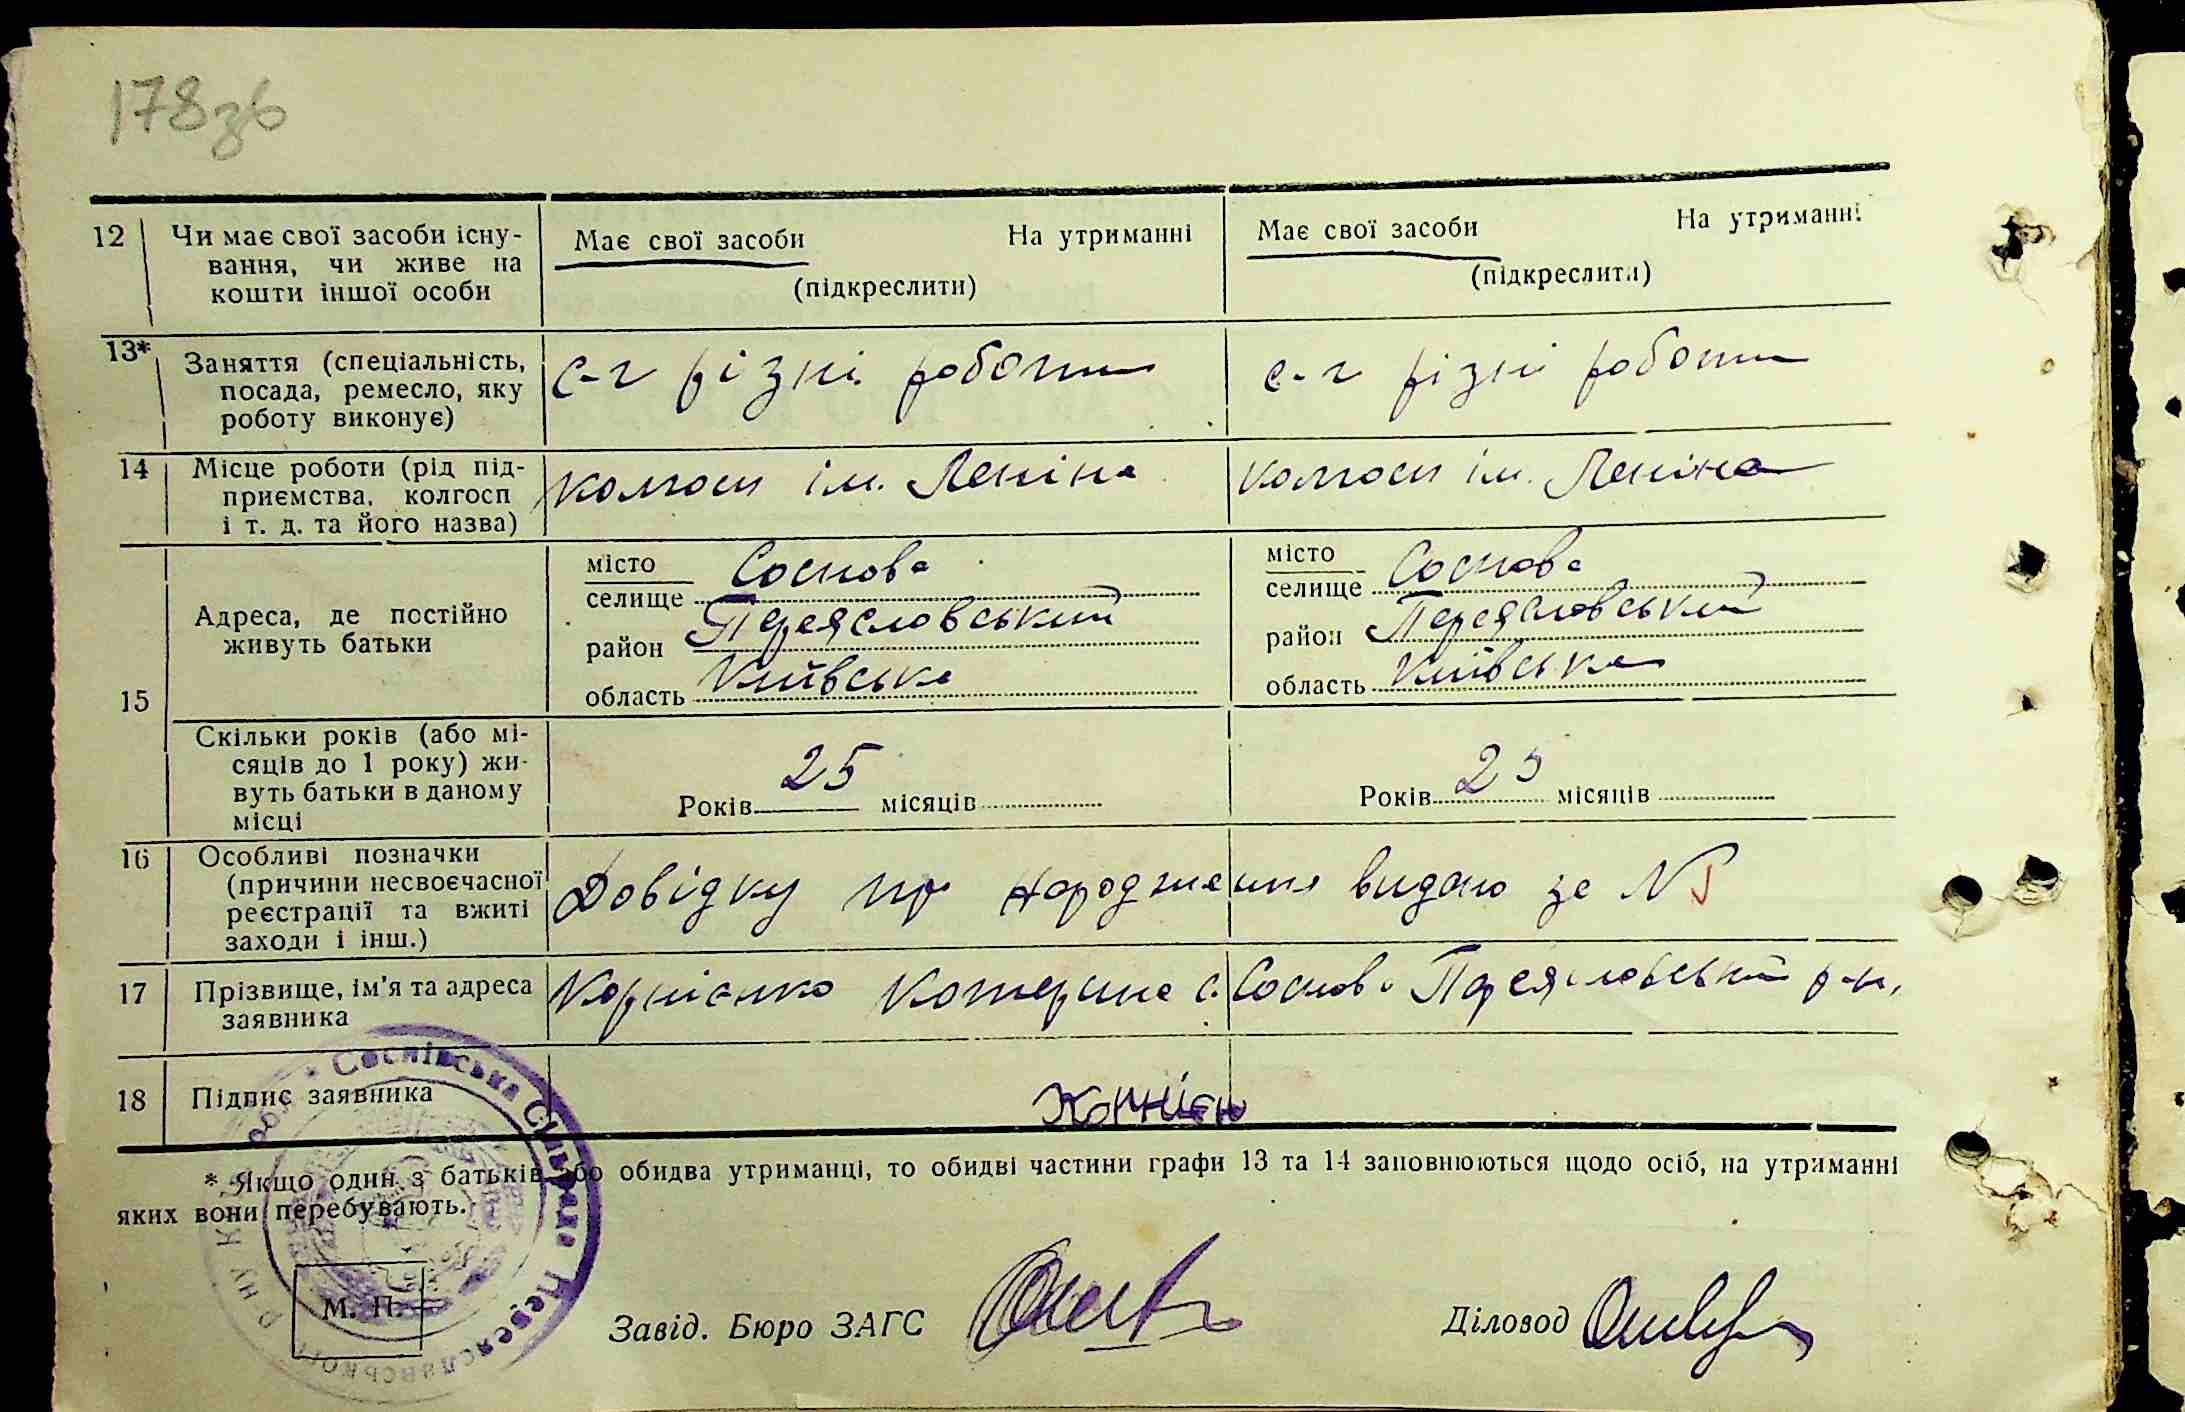 178зв
12 Чи має свої засоби існу-
вання, чи живе на
кошти іншої особи
Має свої засоби На утриманні
(підкреслити)
Має свої засоби На утриманні
(підкреслити)
13* Заняття (спеціальність,
посада, ремесло, яку
роботу виконує)
с-г різні роботи
с-г різні роботи
14 Місце роботи (рід під-
приємства, колгосп
і т. д. та його назва)
колгосп ім. Леніна
колгосп ім. Леніна
15 Адреса, де постійно
живуть батьки
місто
селище Соснова
район Переяславський
область Київська
місто
селище Соснова
район Переяславський
область Київська
Скільки років (або мі-
сяців до 1 року) жи-
вуть батьки в даному
місці
Років 25 місяців
Років 25 місяців
16 Особливі позначки
(причини несвоєчасної
реєстрації та вжиті
заходи і інш.)
Довідку пр народження видано за № 5
17 Прізвище, ім'я та адреса
заявника
Корнієнко Катерина с. Соснова Переяславський р-н,
18 Підпис заявника
Корнієн
* Якщо один з батьків або обидва утриманці, то обидві частини графи 13 та 14 заповнюються щодо осіб, на утриманні
яких вони перебувають.
Соснівська Сільрада Переяславського р-ну
М. П.
Завід. Бюро ЗАГС
Діловод